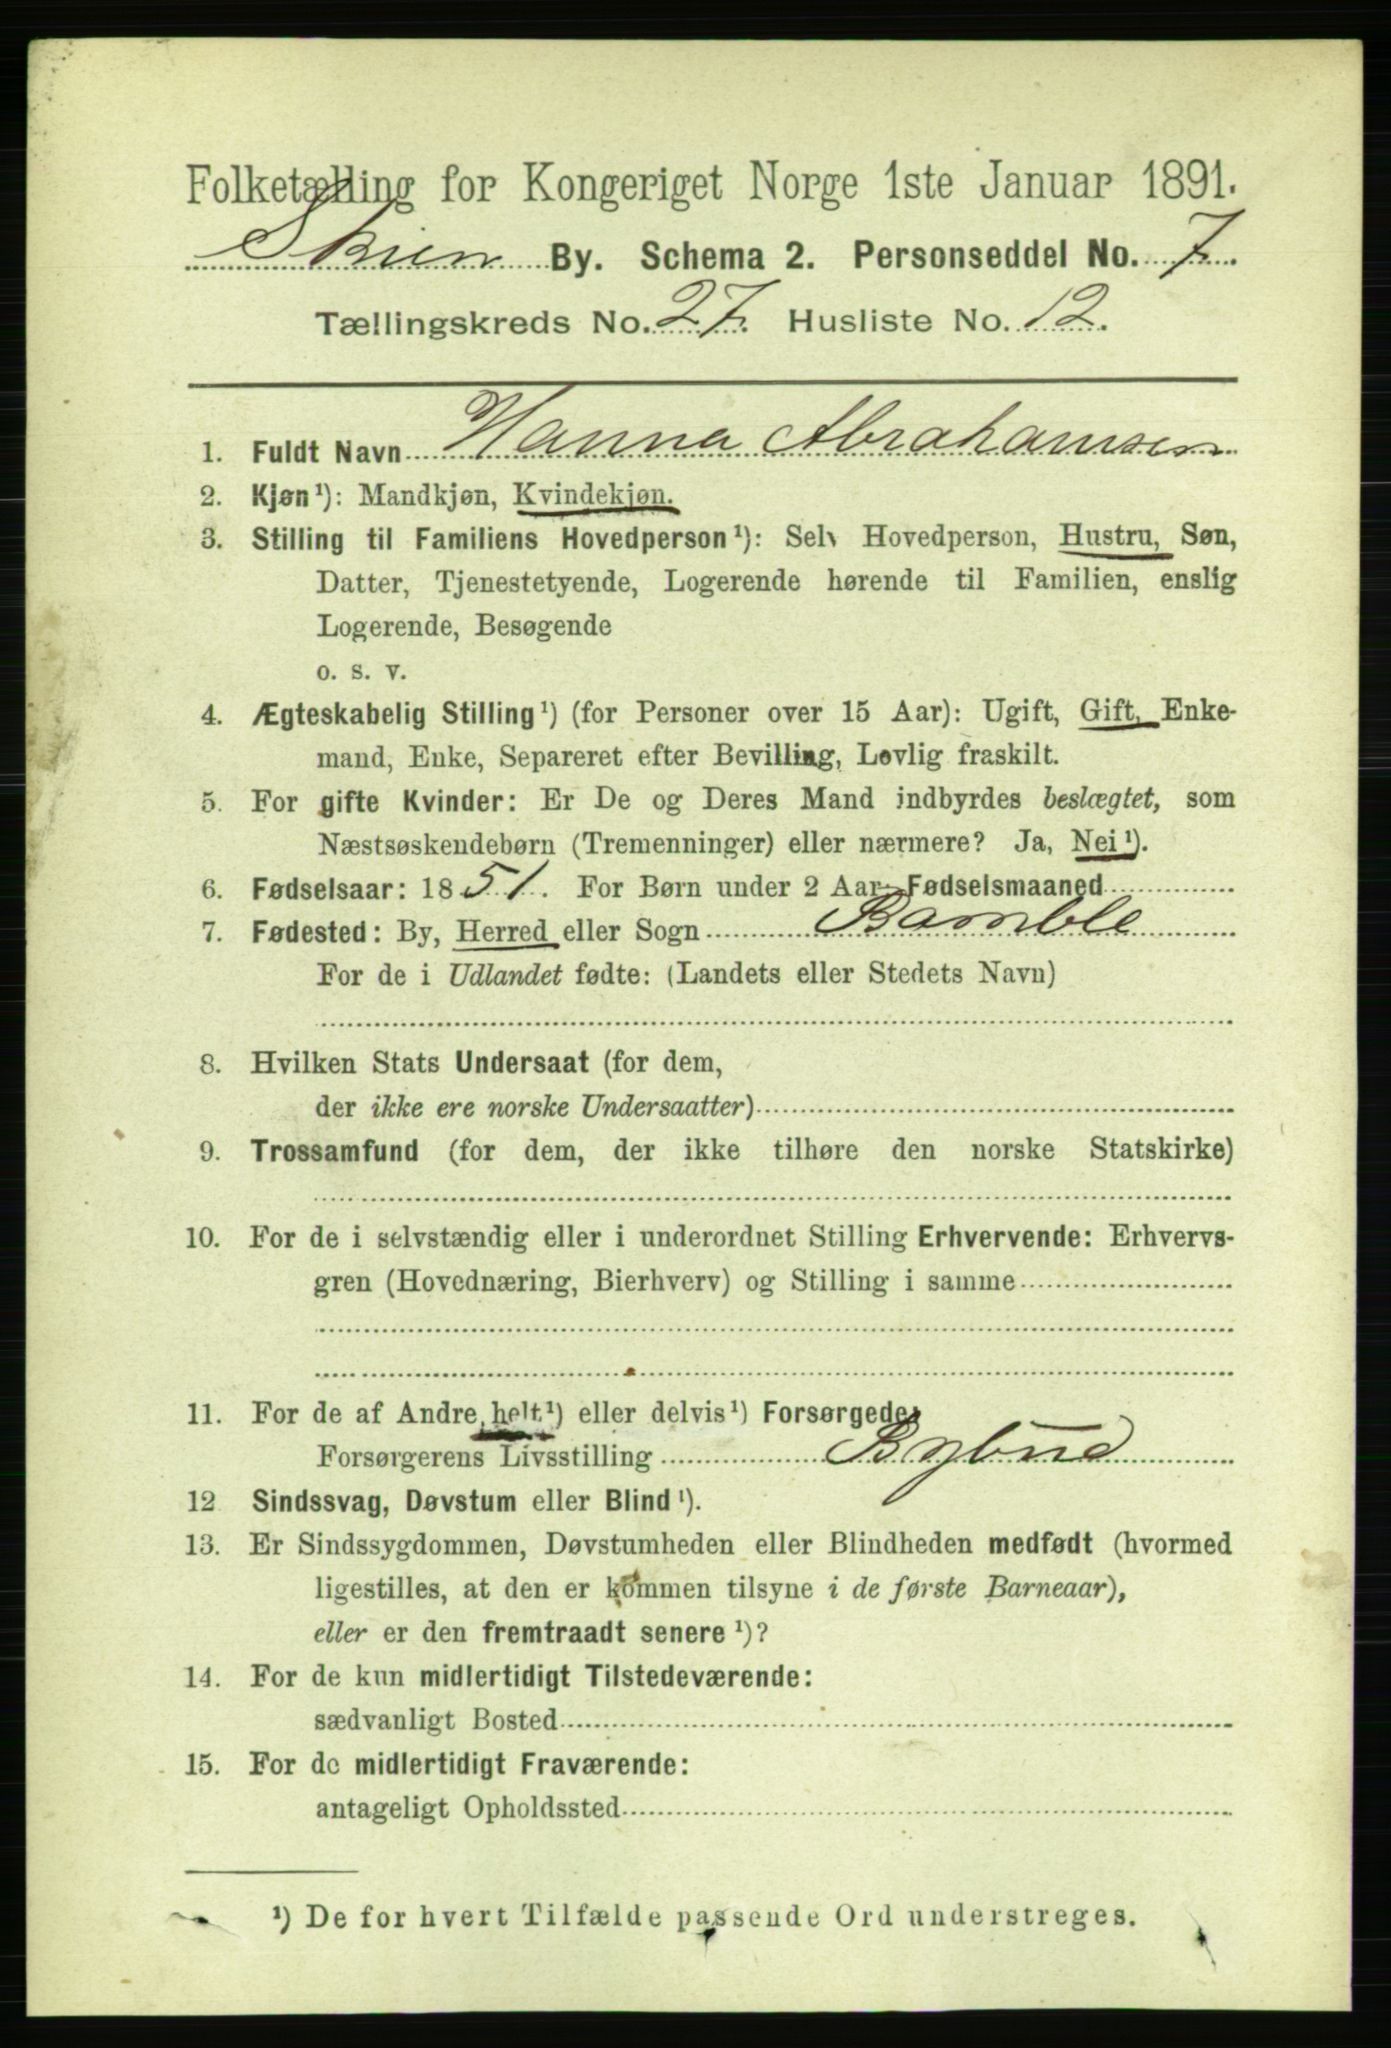 Folketælling for Kongeriget Norge 1ste Januar 1891.
Skien By. Schema 2. Personseddel No. 7.
Tællingskreds No. 27. Husliste No. 12.
1. Fuldt Navn Hanna Abrahamsen
2. Kjøn¹): Mandkjøn, Kvindekjøn.
3. Stilling til Familiens Hovedperson¹): Selv Hovedperson, Hustru, Søn,
Datter, Tjenestetyende, Logerende hørende til Familien, enslig
Logerende, Besøgende
o. s. v.
4. Ægteskabelig Stilling¹) (for Personer over 15 Aar): Ugift, Gift, Enke-
mand, Enke, Separeret efter Bevilling, Lovlig fraskilt.
5. For gifte Kvinder: Er De og Deres Mand indbyrdes beslægtet, som
Næstsøskendebørn (Tremenninger) eller nærmere? Ja, Nei¹).
6. Fødselsaar: 1851. For Børn under 2 Aar: Fødselsmaaned
7. Fødested: By, Herred eller Sogn Bamble
For de i Udlandet fødte: (Landets eller Stedets Navn)
8. Hvilken Stats Undersaat (for dem,
der ikke ere norske Undersaatter)
9. Trossamfund (for dem, der ikke tilhøre den norske Statskirke)
10. For de i selvstændig eller i underordnet Stilling Erhvervende: Erhvervs-
gren (Hovednæring, Bierhverv) og Stilling i samme
11. For de af Andre helt¹) eller delvis¹) Forsørgede:
Forsørgerens Livsstilling Bybud
12 Sindssvag, Døvstum eller Blind¹).
13. Er Sindssygdommen, Døvstumheden eller Blindheden medfødt (hvormed
ligestilles, at den er kommen tilsyne i de første Barneaar),
eller er den fremtraadt senere¹)?
14. For de kun midlertidigt Tilstedeværende:
sædvanligt Bosted
15. For de midlertidigt Fraværende:
antageligt Opholdssted
¹) De for hvert Tilfælde passende Ord understreges.